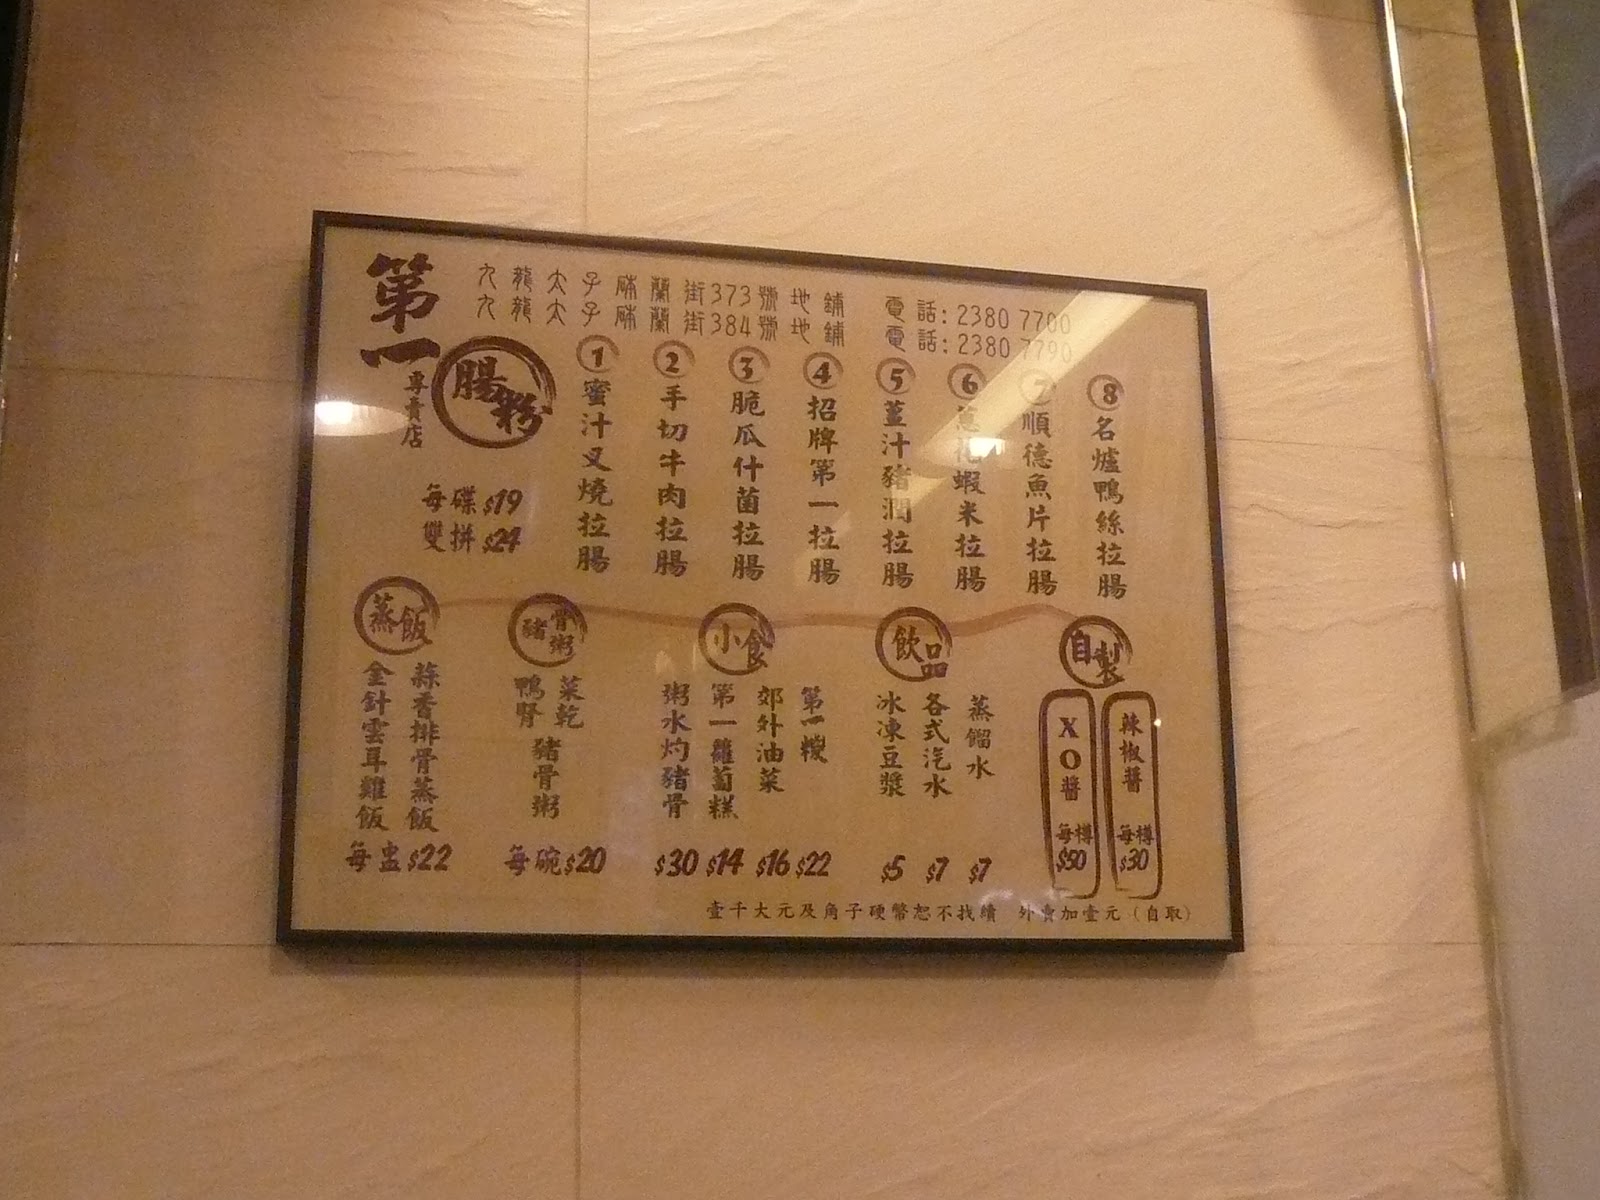 第一
腸粉
專賣店
九龍太子砵蘭街373號地鋪 電話:2380 7700
九龍太子砵蘭街384號地鋪 電話:2380 7790
每碟$19
雙拼$24
1 蜜汁叉燒拉腸
2 手切牛肉拉腸
3 脆瓜什菌拉腸
4 招牌第一拉腸
5 薑汁豬潤拉腸
6 蔥花蝦米拉腸
7 順德魚片拉腸
8 名爐鴨絲拉腸
蒸飯
蒜香排骨蒸飯
金針雲耳雞飯
每盅$22
豬骨粥
菜乾
鴨腎
豬骨粥
每碗$20
小食
粥水灼豬骨 $30
第一蘿蔔糕 $14
郊外油菜 $16
第一糉 $22
飲品
冰凍豆漿 $5
各式汽水 $7
蒸餾水 $7
自製
XO醬 每樽 $50
辣椒醬 每樽 $30
壹千大元及角子硬幣恕不找續 外賣加壹元(自取)